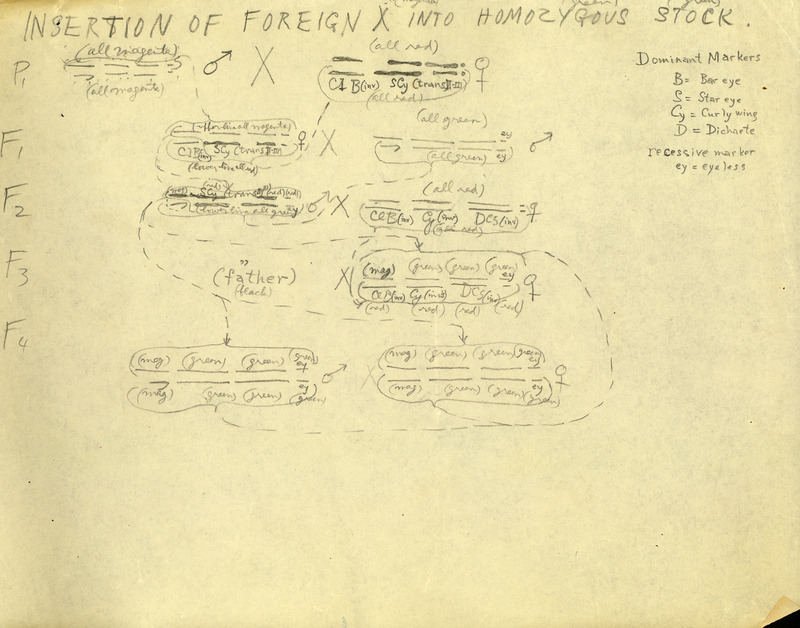 INSERTION OF FOREIGN X INTO HOMOZYGOUS STOCK.
P1 (all magenta) ♂ X (all red) ♀
(all magenta) ClB(inv) SCy(trans II-III)
(all red)
Dominant Markers
B = Bar eye
S = Star eye
Cy = Curly wing
D = Dichaete
recessive marker
ey = eyeless
F1 ♀ X (all green) ey ♂
ClB(inv) SCy(trans II-III) (all green) ey
F2 (red) (red) ♂ X (all red) ♀
(lower line all green) ey ClB(inv) Cy(inv) DCS(inv)
(all red)
F3 (father) X (mag) (green) (green) (green) ey ♀
(black) ClB(inv) Cy(inv) DCS(inv)
(red) (red) (red) (red)
F4
(mag) (green) (green) (green) ey ♂ X (mag) (green) (green) (green) ey ♀
(mag) (green) (green) ey (green) (mag) (green) (green) ey (green)